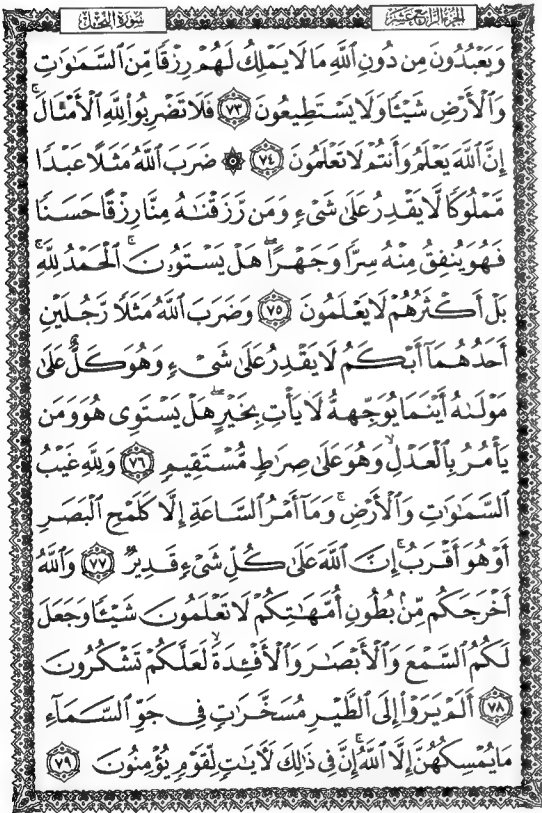 الجزء الرابع عشر
سورة النحل
وَيَعْبُدُونَ مِن دُونِ ٱللَّهِ مَا لَا يَمْلِكُ لَهُمْ رِزْقًا مِّنَ ٱلسَّمَٰوَٰتِ
وَٱلْأَرْضِ شَيْـًٔا وَلَا يَسْتَطِيعُونَ ۝٧٣ فَلَا تَضْرِبُوا۟ لِلَّهِ ٱلْأَمْثَالَ ۚ
إِنَّ ٱللَّهَ يَعْلَمُ وَأَنتُمْ لَا تَعْلَمُونَ ۝٧٤ ۞ ضَرَبَ ٱللَّهُ مَثَلًا عَبْدًا
مَّمْلُوكًا لَّا يَقْدِرُ عَلَىٰ شَىْءٍ وَمَن رَّزَقْنَٰهُ مِنَّا رِزْقًا حَسَنًا
فَهُوَ يُنفِقُ مِنْهُ سِرًّا وَجَهْرًا ۖ هَلْ يَسْتَوُۥنَ ۚ ٱلْحَمْدُ لِلَّهِ ۚ
بَلْ أَكْثَرُهُمْ لَا يَعْلَمُونَ ۝٧٥ وَضَرَبَ ٱللَّهُ مَثَلًا رَّجُلَيْنِ
أَحَدُهُمَآ أَبْكَمُ لَا يَقْدِرُ عَلَىٰ شَىْءٍ وَهُوَ كَلٌّ عَلَىٰ
مَوْلَىٰهُ أَيْنَمَا يُوَجِّههُّ لَا يَأْتِ بِخَيْرٍ ۖ هَلْ يَسْتَوِى هُوَ وَمَن
يَأْمُرُ بِٱلْعَدْلِ ۙ وَهُوَ عَلَىٰ صِرَٰطٍ مُّسْتَقِيمٍ ۝٧٦ وَلِلَّهِ غَيْبُ
ٱلسَّمَٰوَٰتِ وَٱلْأَرْضِ ۚ وَمَآ أَمْرُ ٱلسَّاعَةِ إِلَّا كَلَمْحِ ٱلْبَصَرِ
أَوْ هُوَ أَقْرَبُ ۚ إِنَّ ٱللَّهَ عَلَىٰ كُلِّ شَىْءٍ قَدِيرٌ ۝٧٧ وَٱللَّهُ
أَخْرَجَكُم مِّنۢ بُطُونِ أُمَّهَٰتِكُمْ لَا تَعْلَمُونَ شَيْـًٔا وَجَعَلَ
لَكُمُ ٱلسَّمْعَ وَٱلْأَبْصَٰرَ وَٱلْأَفْـِٔدَةَ ۙ لَعَلَّكُمْ تَشْكُرُونَ
۝٧٨ أَلَمْ يَرَوْا۟ إِلَى ٱلطَّيْرِ مُسَخَّرَٰتٍ فِى جَوِّ ٱلسَّمَآءِ
مَا يُمْسِكُهُنَّ إِلَّا ٱللَّهُ ۗ إِنَّ فِى ذَٰلِكَ لَءَايَٰتٍ لِّقَوْمٍ يُؤْمِنُونَ ۝٧٩